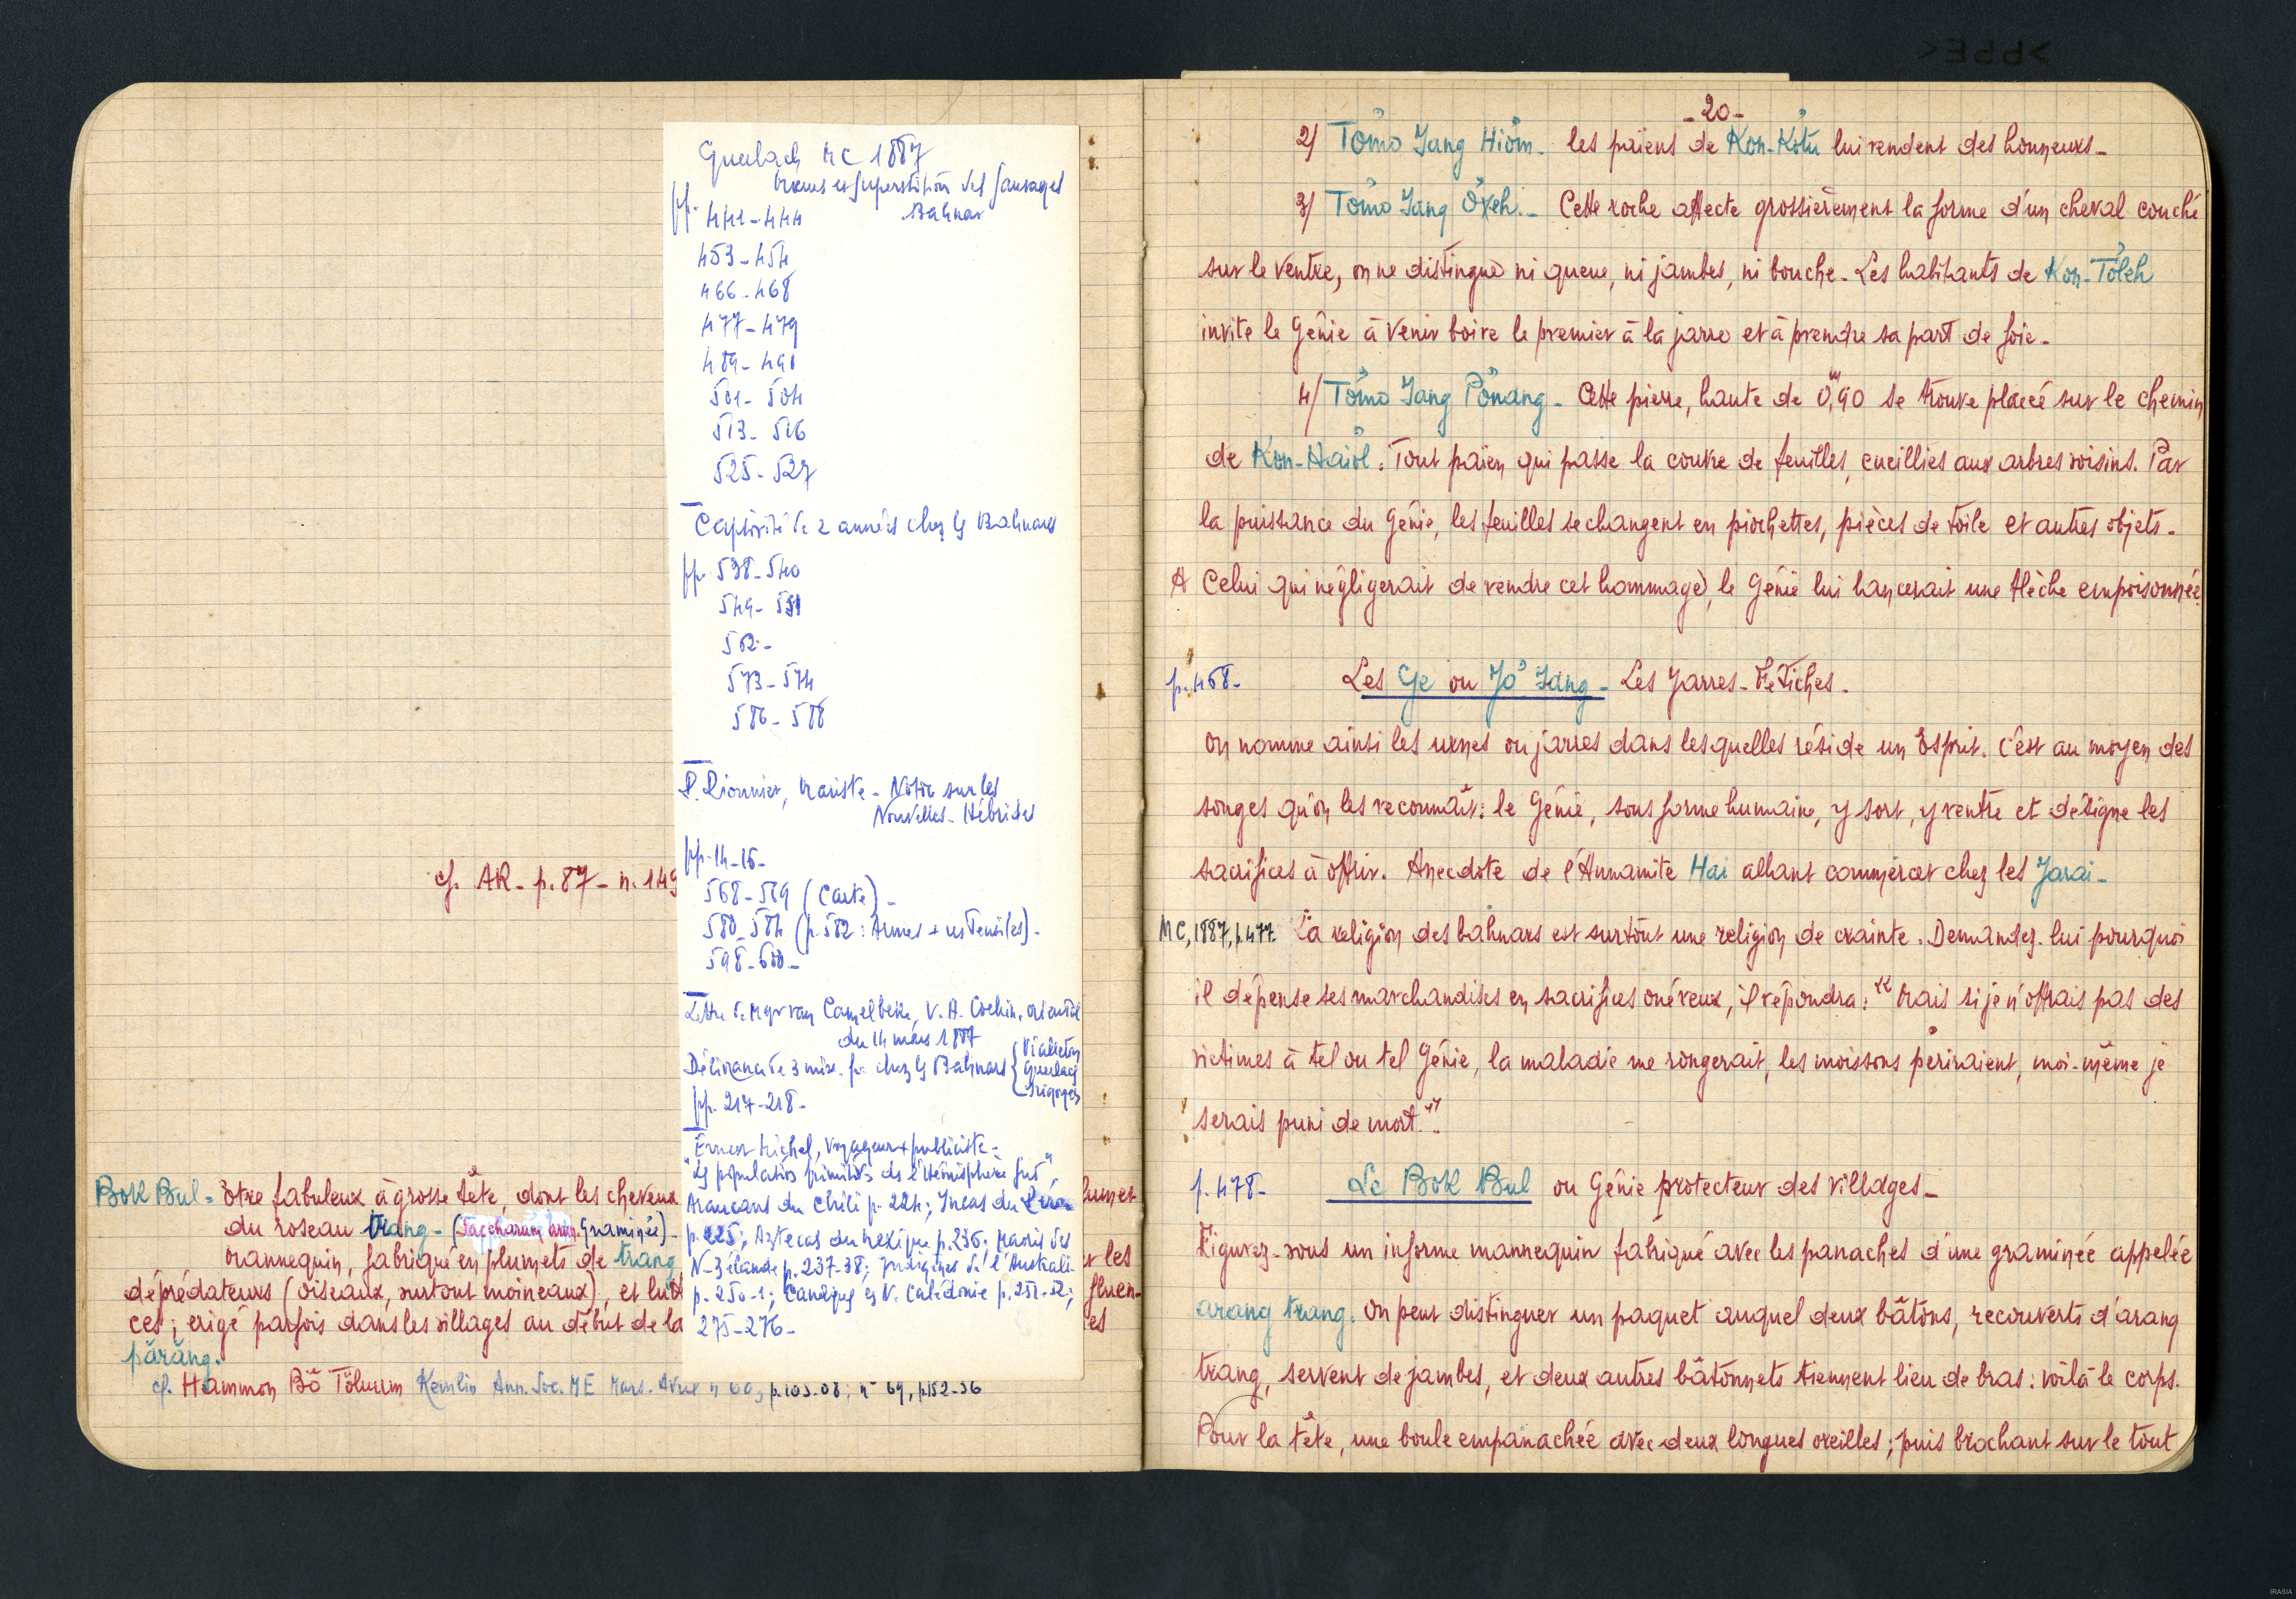 cf. AR - p. 87 - n. 149
Bok Bul = Être fabuleux à grosse tête, dont les cheveux
du roseau trang - (Saccharum arun. Graminée) -
Mannequin, fabriqué en plumets de trang
déprédateurs (oiseaux, surtout moineaux), et lutt
ces ; érigé parfois dans les villages au début de la
părăng.
cf. Hammon Bŏ Tŏlŭum Kemlin Ann. Soc. ME Mars. Avril n° 60, p. 103-08 ; n° 69, p. 152-56
lumet
r les
fluen-
es
Guerlach MC 1887
Mœurs et superstitions des sauvages
Bahnar
pp. 441-444
453-454
466-468
477-479
489-491
501-504
513-516
525-527
Captivité de 2 années chez les Bahnars
pp. 538-540
549-551
562-
573-574
586-588
P. Pionnier, Mariste - Notice sur les
Nouvelles-Hébrides
pp. 14-16-
568-569 (Carte) -
580-584 (p. 582 : Armes + ustensiles) -
598-600 -
Lettre de Mgr van Camelbeke, V. A. Cochin. oriental
du 14 mars 1887
Délivrance de 3 miss. fr. chez les Bahnars { Vialleton
Guerlach
Irigoyen
pp. 217-218 -
Ernest Michel, voyageur + publiciste =
"Les populations primitives de l'Hémisphère Sud",
Araucans du Chili p. 224 ; Incas du
p. 225 ; Aztecas du Mexique p. 236 ; Maoris des
N-Zélande p. 237-38 ; Indigènes de l'Australi-
p. 250-1 ; Canaques es N. Calédonie p. 251-52 ;
275-276 -
- 20 -
2/ Tŏmo Iang Hiŏm - les païens de Kon-Kŏtu lui rendent des honneurs -
3/ Tŏmo Iang Ŏxeh. - Cette roche affecte grossièrement la forme d'un cheval couché
sur le ventre, on ne distingue ni queue, ni jambes, ni bouche. Les habitants de Kon-Tŏleh
invite le Génie à venir boire le premier à la jarre et à prendre sa part de foie -
4/ Tŏmo Iang Pŏnang - Cette pierre, haute de 0m,90 se trouve placée sur le chemin
de Kon-Haiŏl. Tout païen qui passe la couvre de feuilles, cueillies aux arbres voisins. Par
la puissance du Génie, les feuilles se changent en piochettes, pièces de toile et autres objets -
A Celui qui négligerait de rendre cet hommage, le Génie lui lancerait une flèche empoisonnée
p. 468 - Les Ge ou Jŏ Iang - Les Jarres-Fétiches -
On nomme ainsi les urnes ou jarres dans lesquelles réside un Esprit. C'est au moyen des
songes qu'on les reconnaît : le Génie, sous forme humaine, y sort, y rentre et désigne les
sacrifices à offrir. Anecdote de l'Annamite Hai allant commercer chez les Jarai -
MC, 1887, p. 477. La religion des bahnars est surtout une religion de crainte. Demandez-lui pourquoi
il dépense ses marchandises en sacrifices onéreux, il répondra : "Mais si je n'offrais pas des
victimes à tel ou tel Génie, la maladie me rongerait, les moissons périraient, moi-même je
serais puni de mort."
p. 478 - Le Bok Bul ou Génie protecteur des villages -
Figurez-vous un informe mannequin fabriqué avec les panaches d'une graminée appelée
arang trang. On peut distinguer un paquet auquel deux bâtons, recouverts d'arang
trang, servent de jambes, et deux autres bâtonnets tiennent lieu de bras : voilà le corps.
Pour la tête, une boule empanachée avec deux longues oreilles ; puis brochant sur le tout
IRASIA